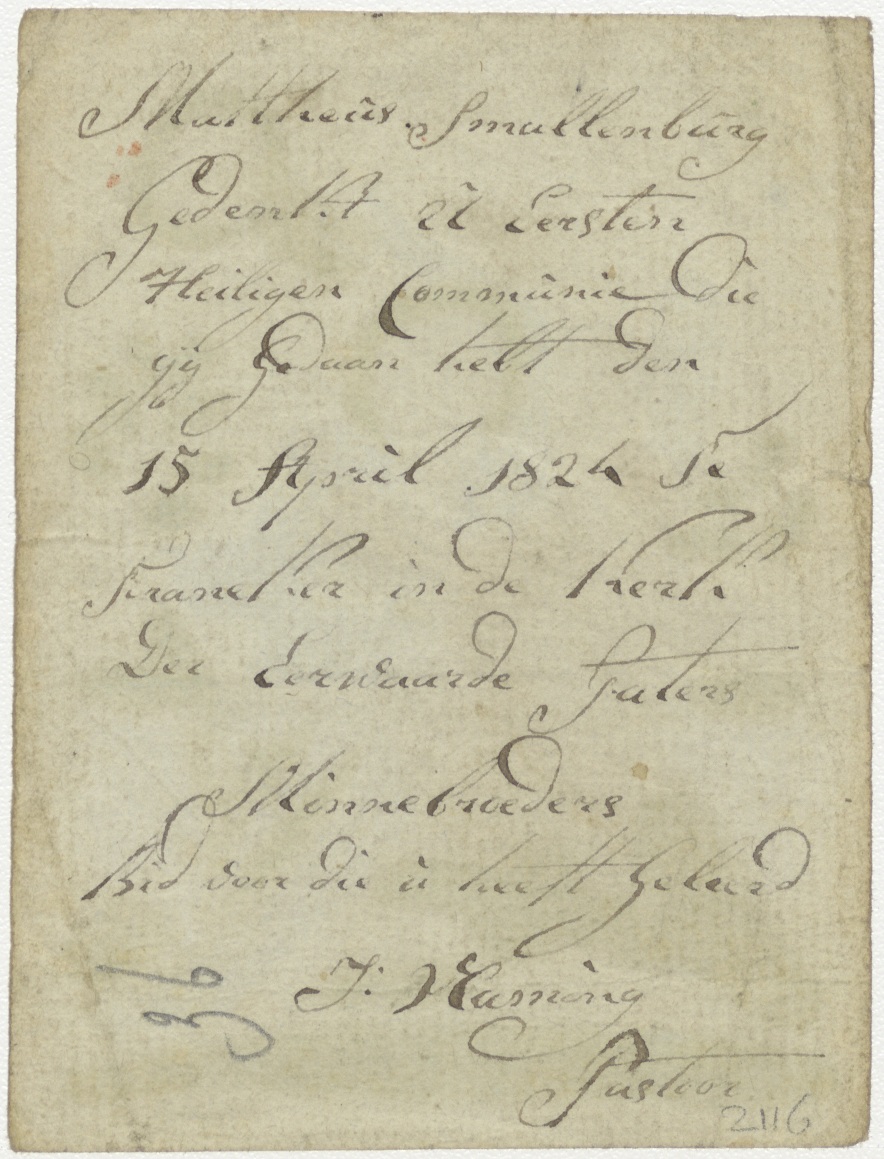 Mattheus Smallenburg
Gedenkt U Eersten
Heiligen Communie die
gij Gedaan hebt den
15 April 1824 Te
Franeker in de Kerk
Der Eerwaarde Paters
Minnebroeders
Bid voor die u heeft Geleerd
J:
Pastoor
2116